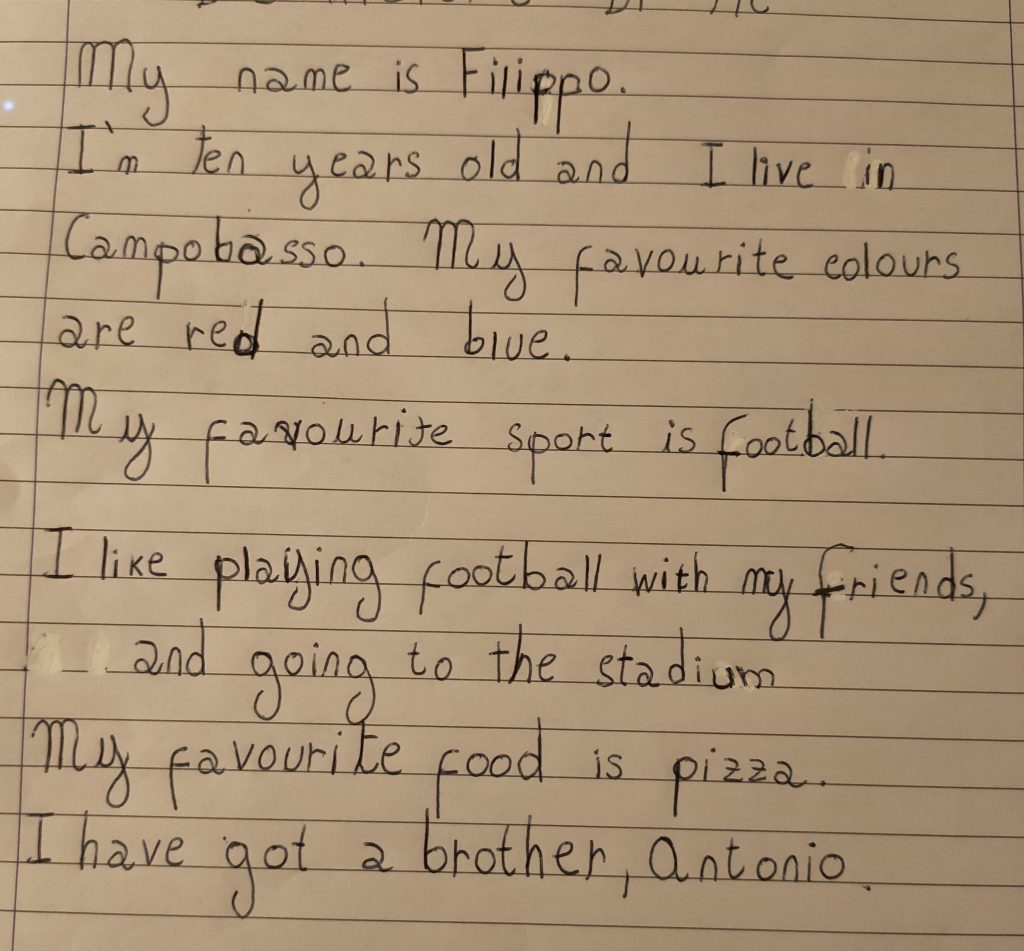 My name is Filippo.
I'm ten years old and I live in
Campobasso. My favourite colours
are red and blue.
My favourite sport is football.
I like playing football with my friends,
and going to the stadium
My favourite food is pizza.
I have got a brother, Antonio.